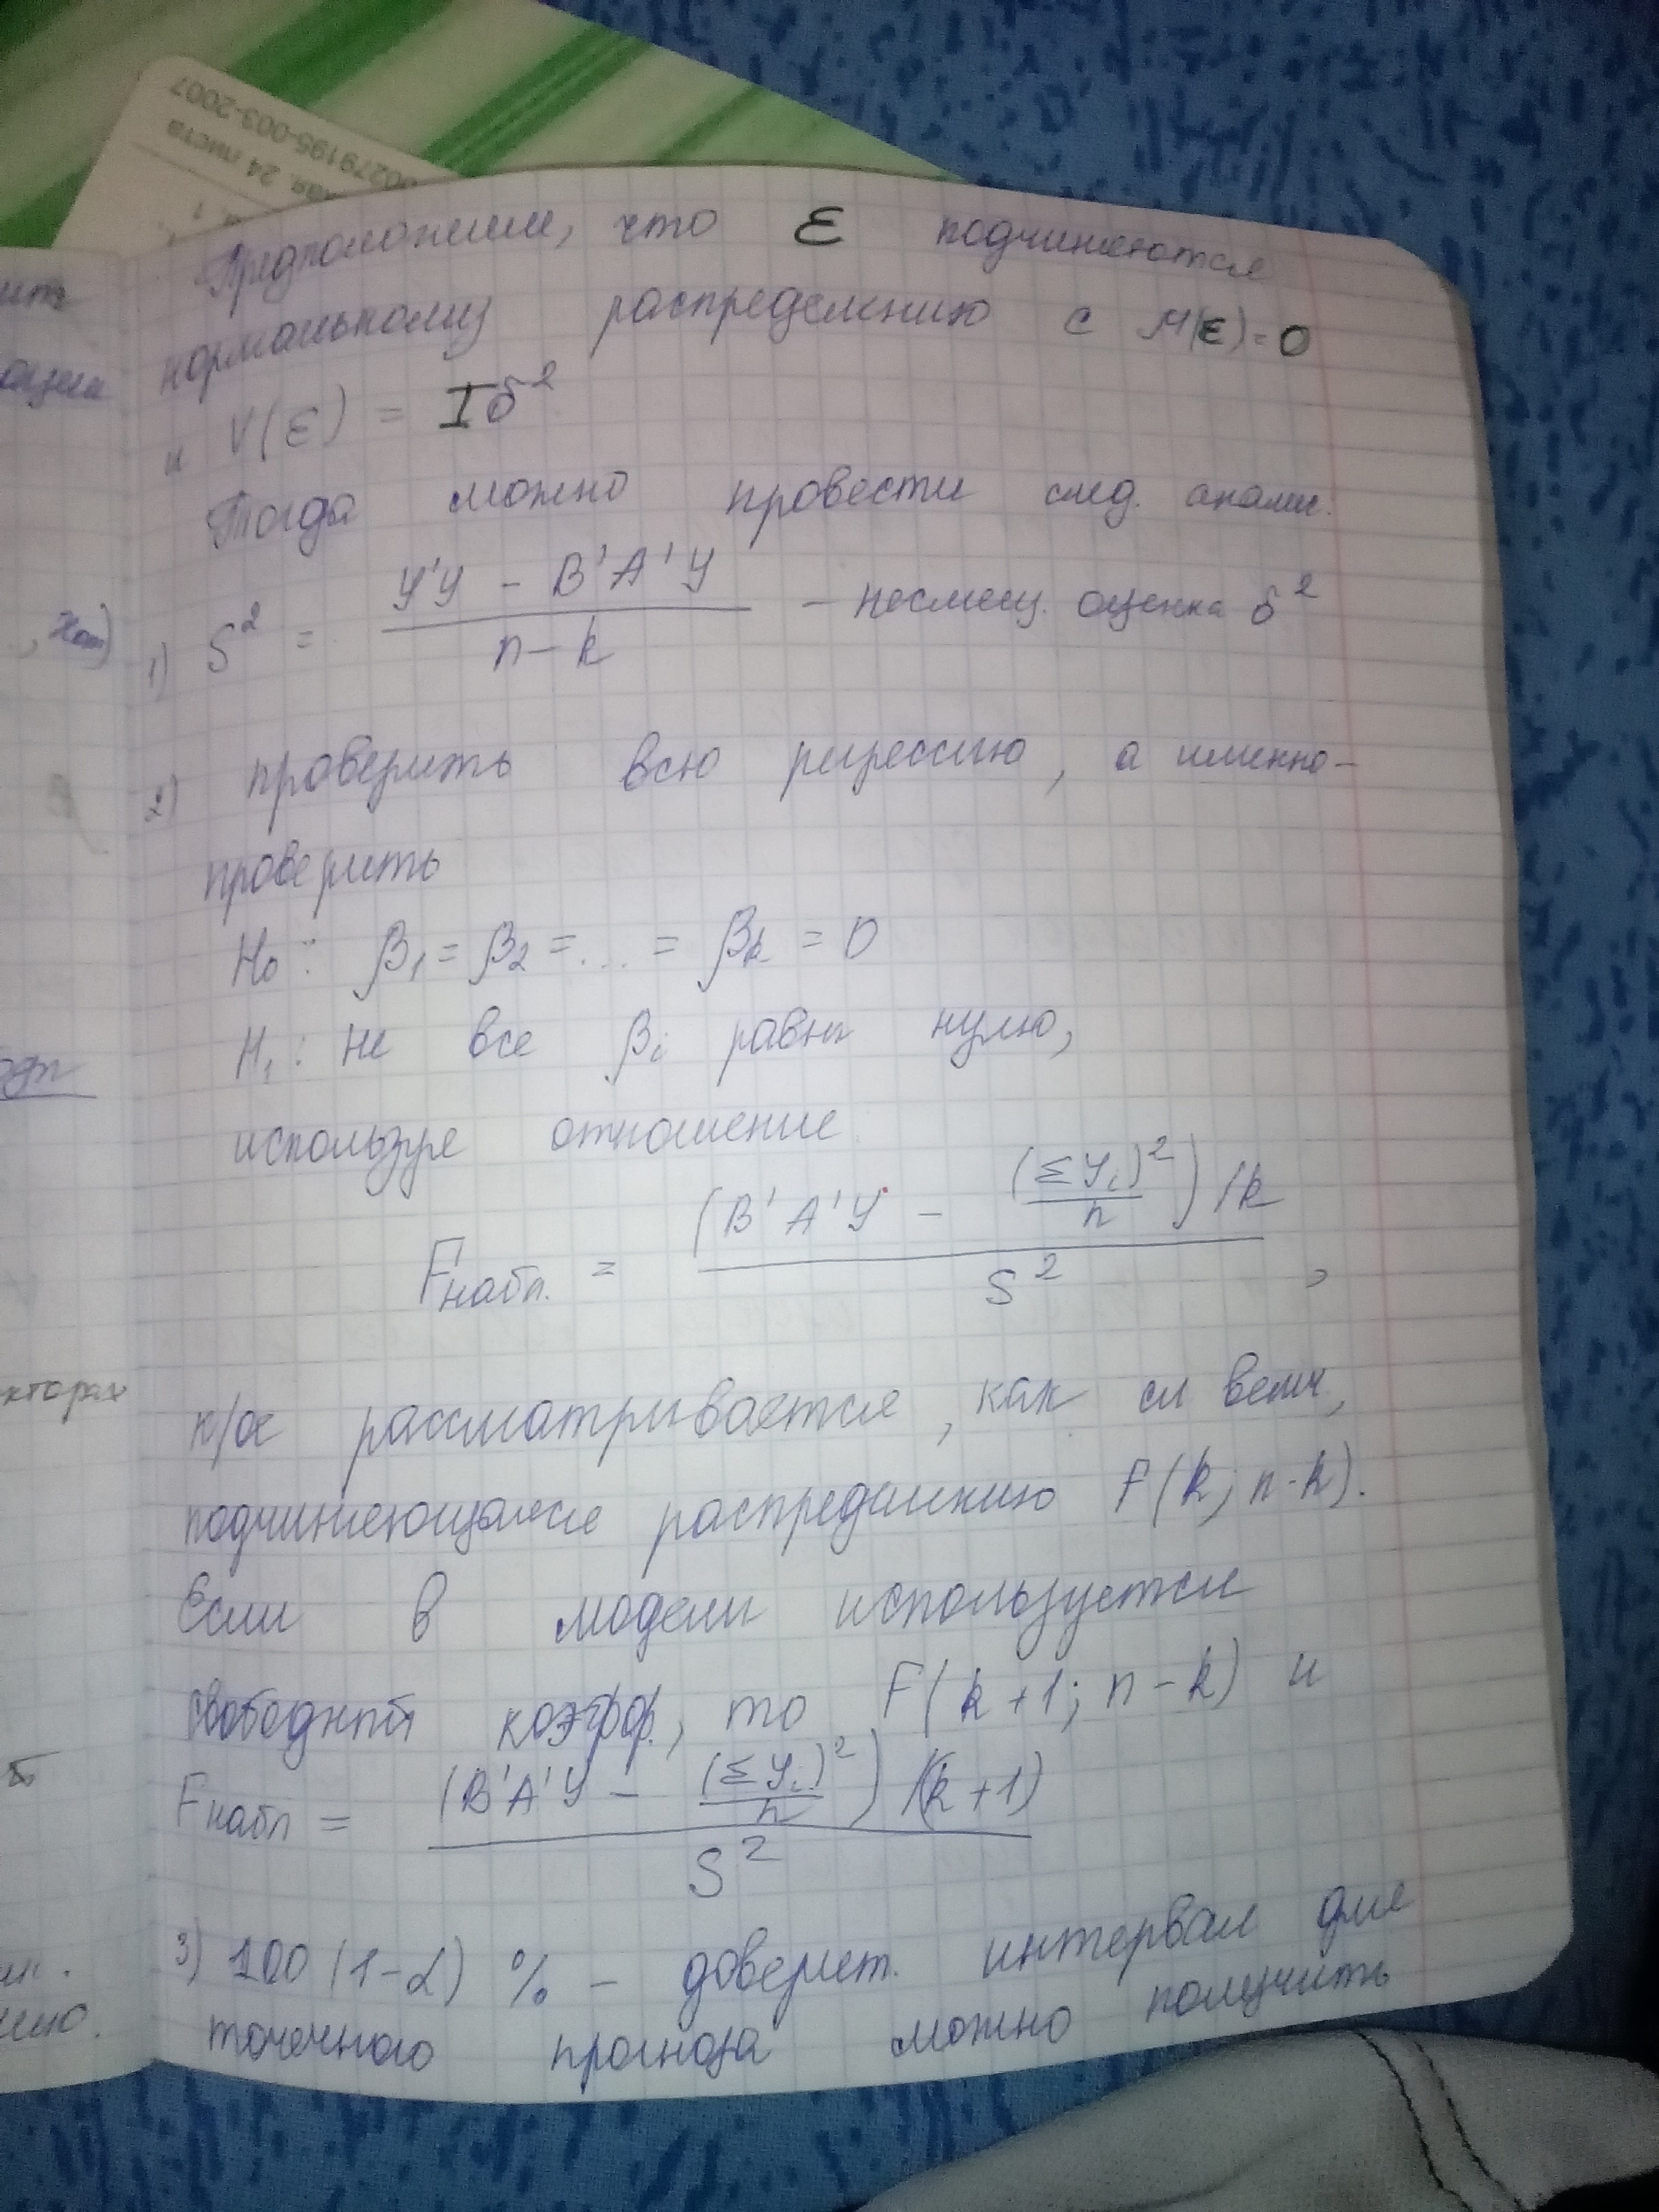 00279195-003-2007
24 листа
Предположим, что ε подчиняются
нормальному распределению с M(ε)=0
и V(ε) = Iδ²
Тогда можно провести след. анализ.
1) S² = (Y'Y - B'A'Y) / (n-k) - несмещ. оценка δ²
2) проверить всю регрессию, а именно-
проверить
H₀: β₁ = β₂ = ... = βk = 0
H₁: не все βi равны нулю,
используя отношение
Fнабл. = ((B'A'Y - (ΣYi)²/n) /k) / S² ,
к/ое рассматривается, как сл велич,
подчиняющаяся распределению F(k; n-k).
Если в модели используется
свободный коэфф., то F(k+1; n-k) и
Fнабл = ((B'A'Y - (ΣYi)²/n) /(k+1)) / S²
3) 100(1-α) % - доверит. интервал для
точечного прогноза можно получить
кторах